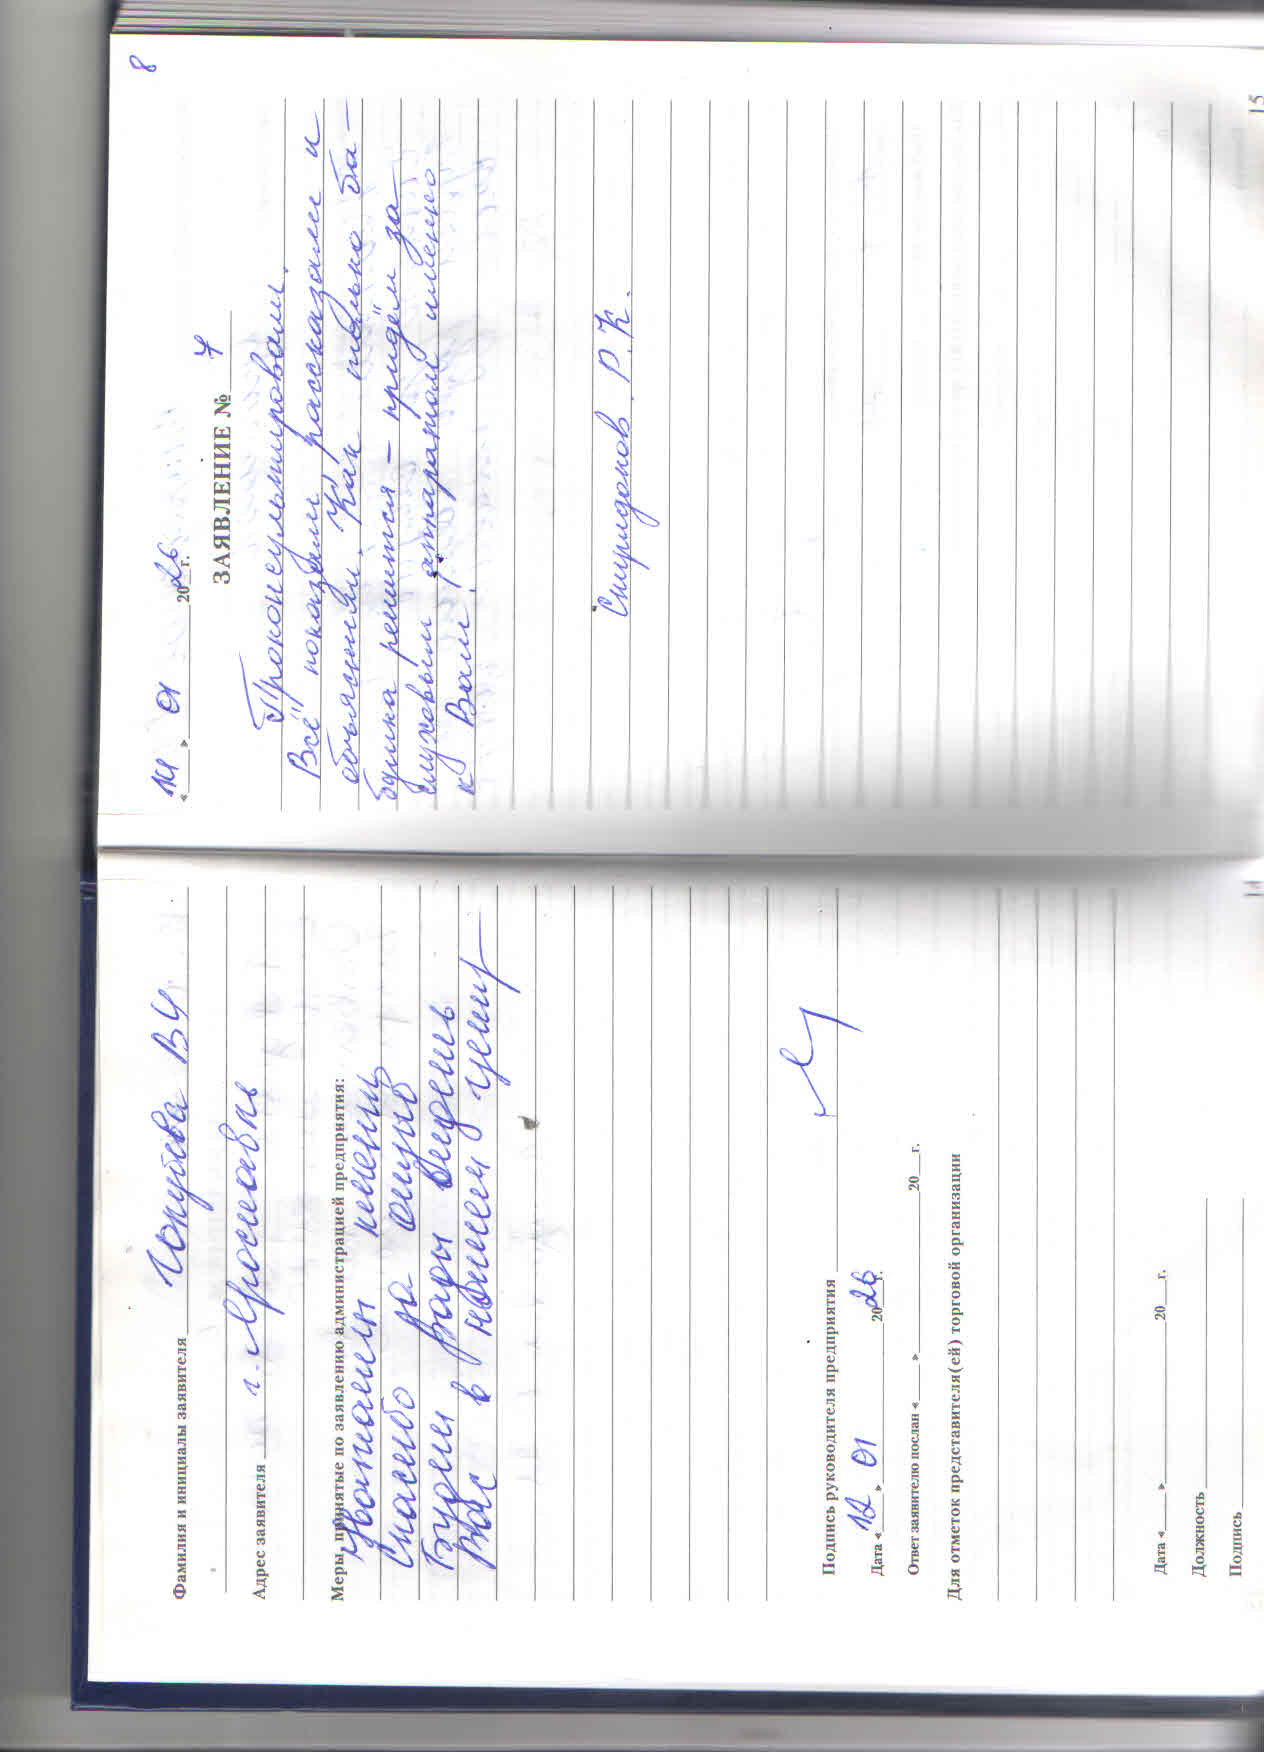 Фамилия и инициалы заявителя
г. Ярославль
Адрес заявителя
Меры, принятые по заявлению администрацией предприятия:
Уважаемый клиент
Спасибо за отзыв
Будем рады видеть
Вас в нашем центре
Подпись руководителя предприятия
Дата «12» 01 2026 г.
Ответ заявителю послан «___» 20__г.
Для отметок представителя(ей) торговой организации
Дата «___» 20__г.
Должность
Подпись
14
8
«14» 01 2026 г.
ЗАЯВЛЕНИЕ № 7
Проконсультировали.
Всё показали, рассказали и
объяснили. Как только ба-
бушка решится – придём за
слуховым аппаратом именно
к Вам!
Спиридонов Р.К.
15